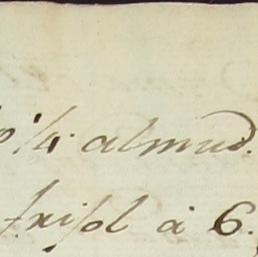 ¼ almud.
frisol à 6.